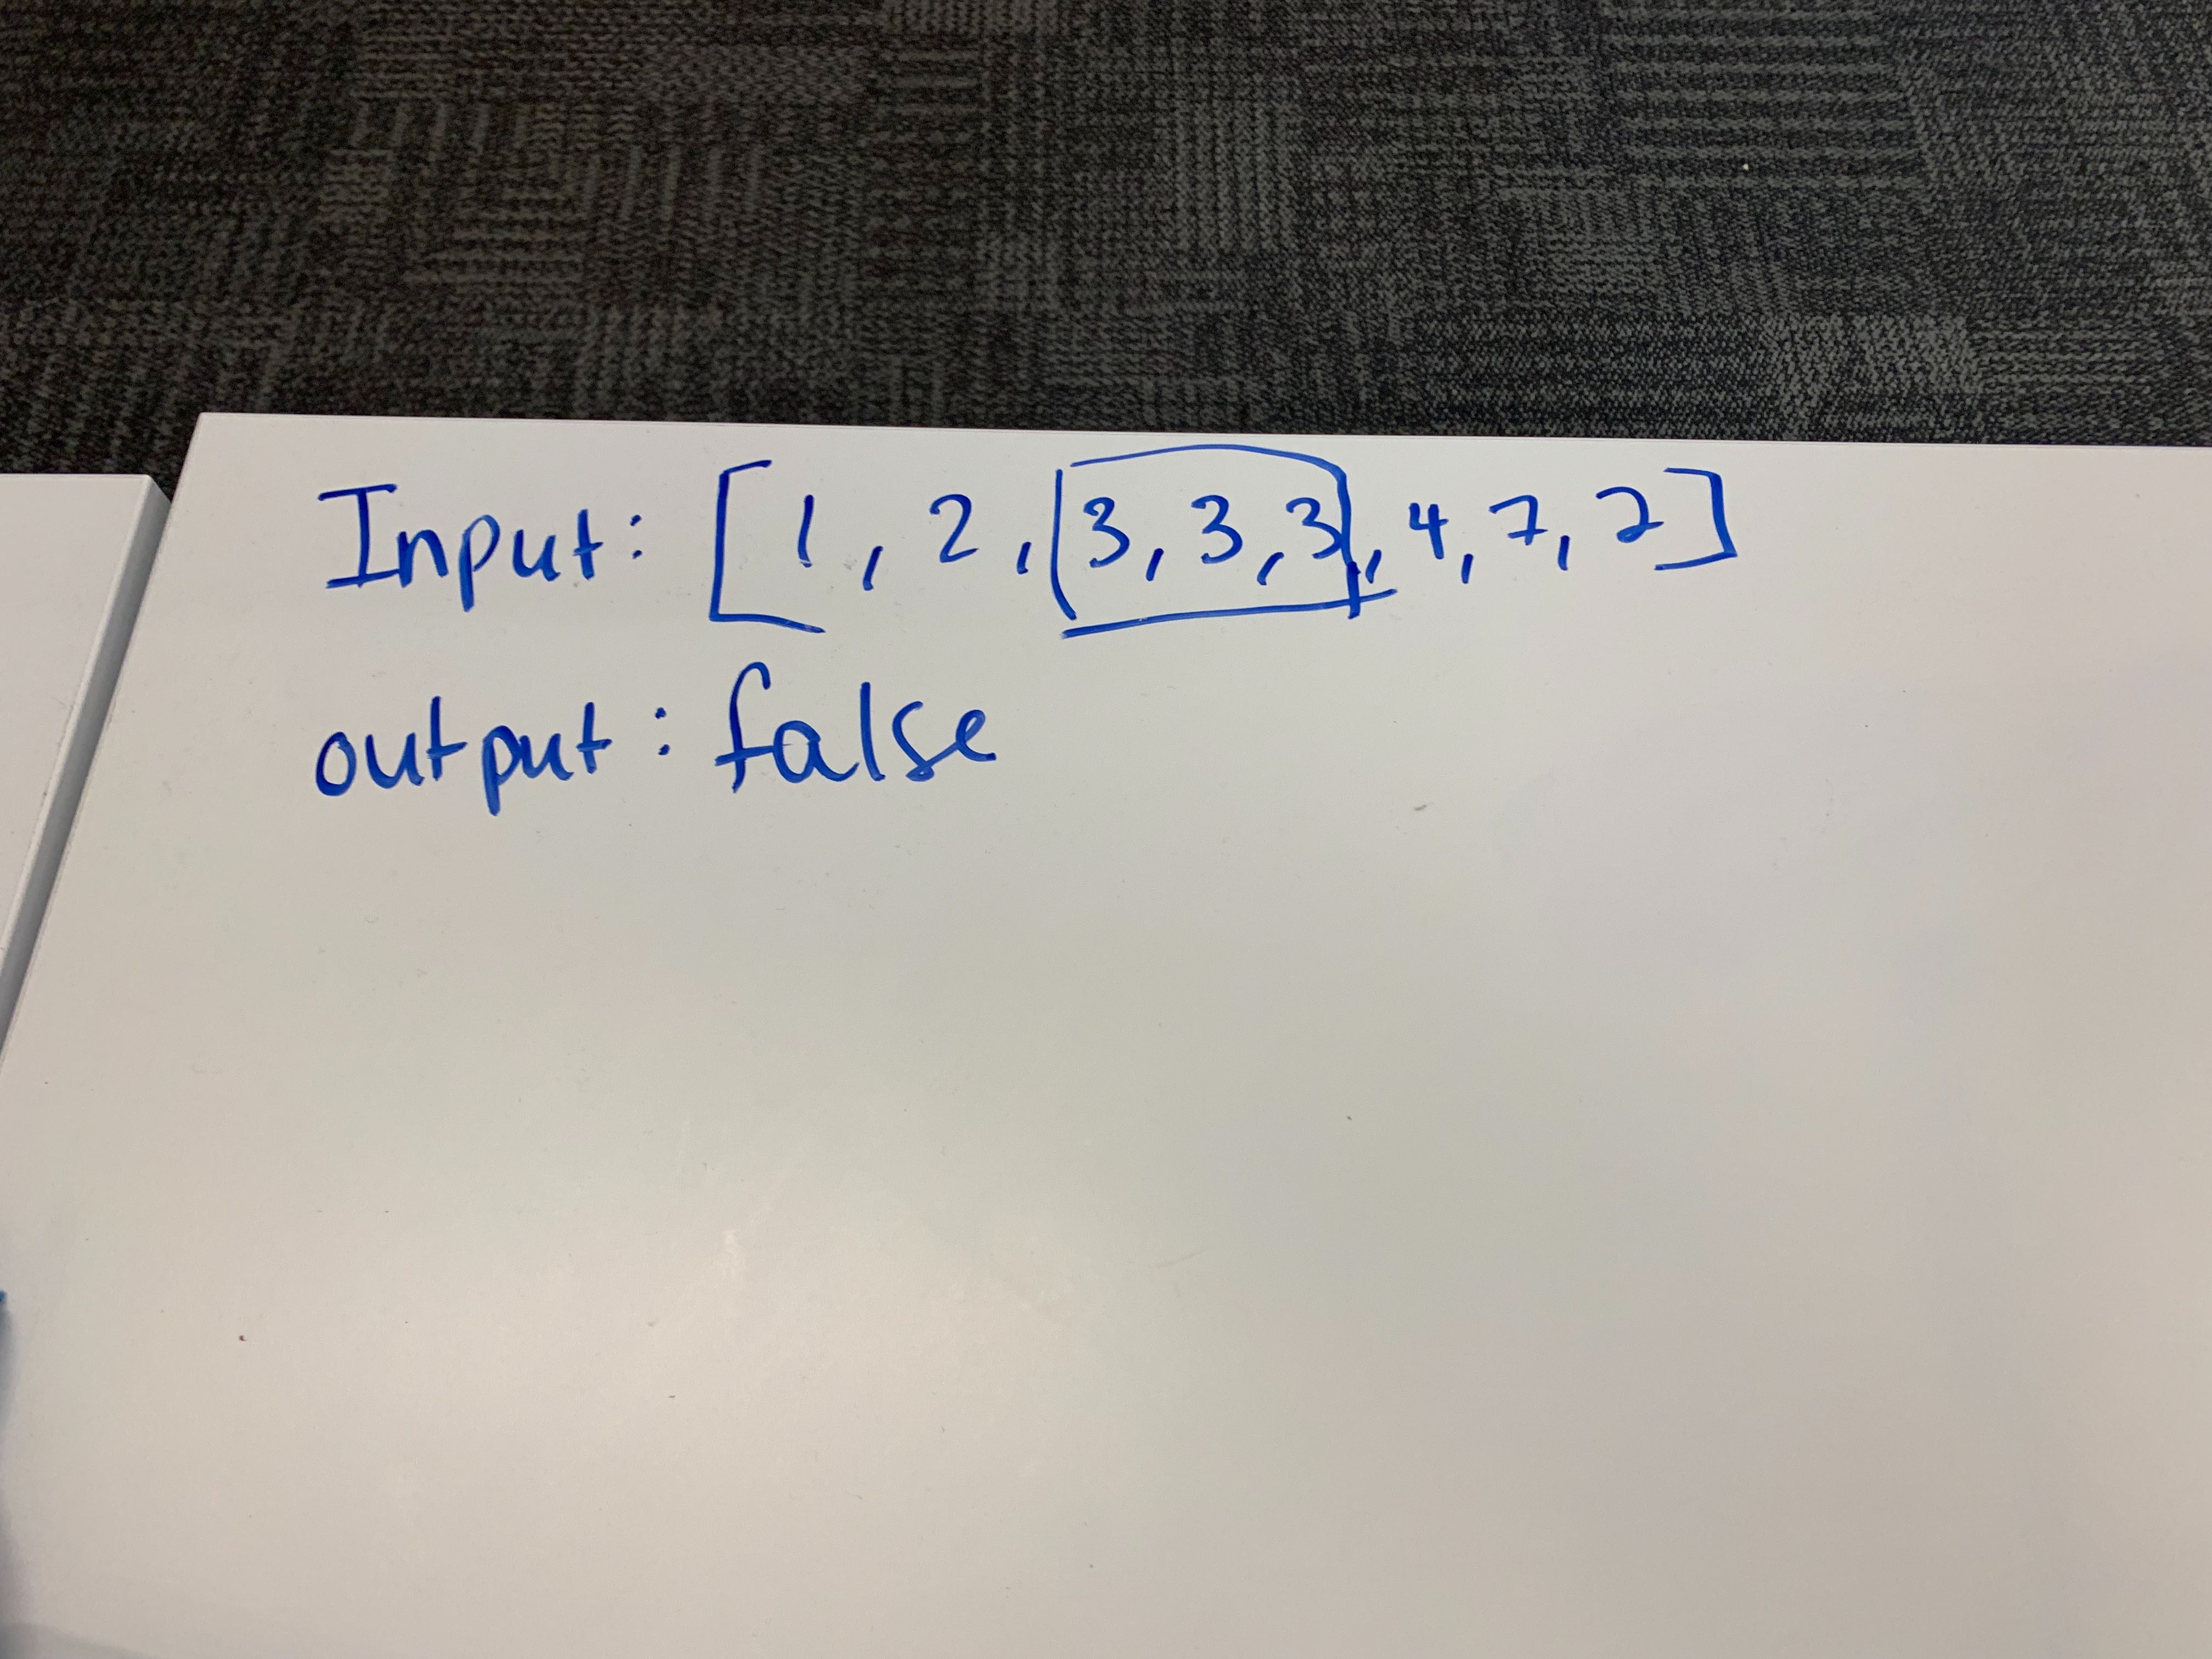 Input: [1, 2, 3, 3, 3, 4, 7, 2]
output: false